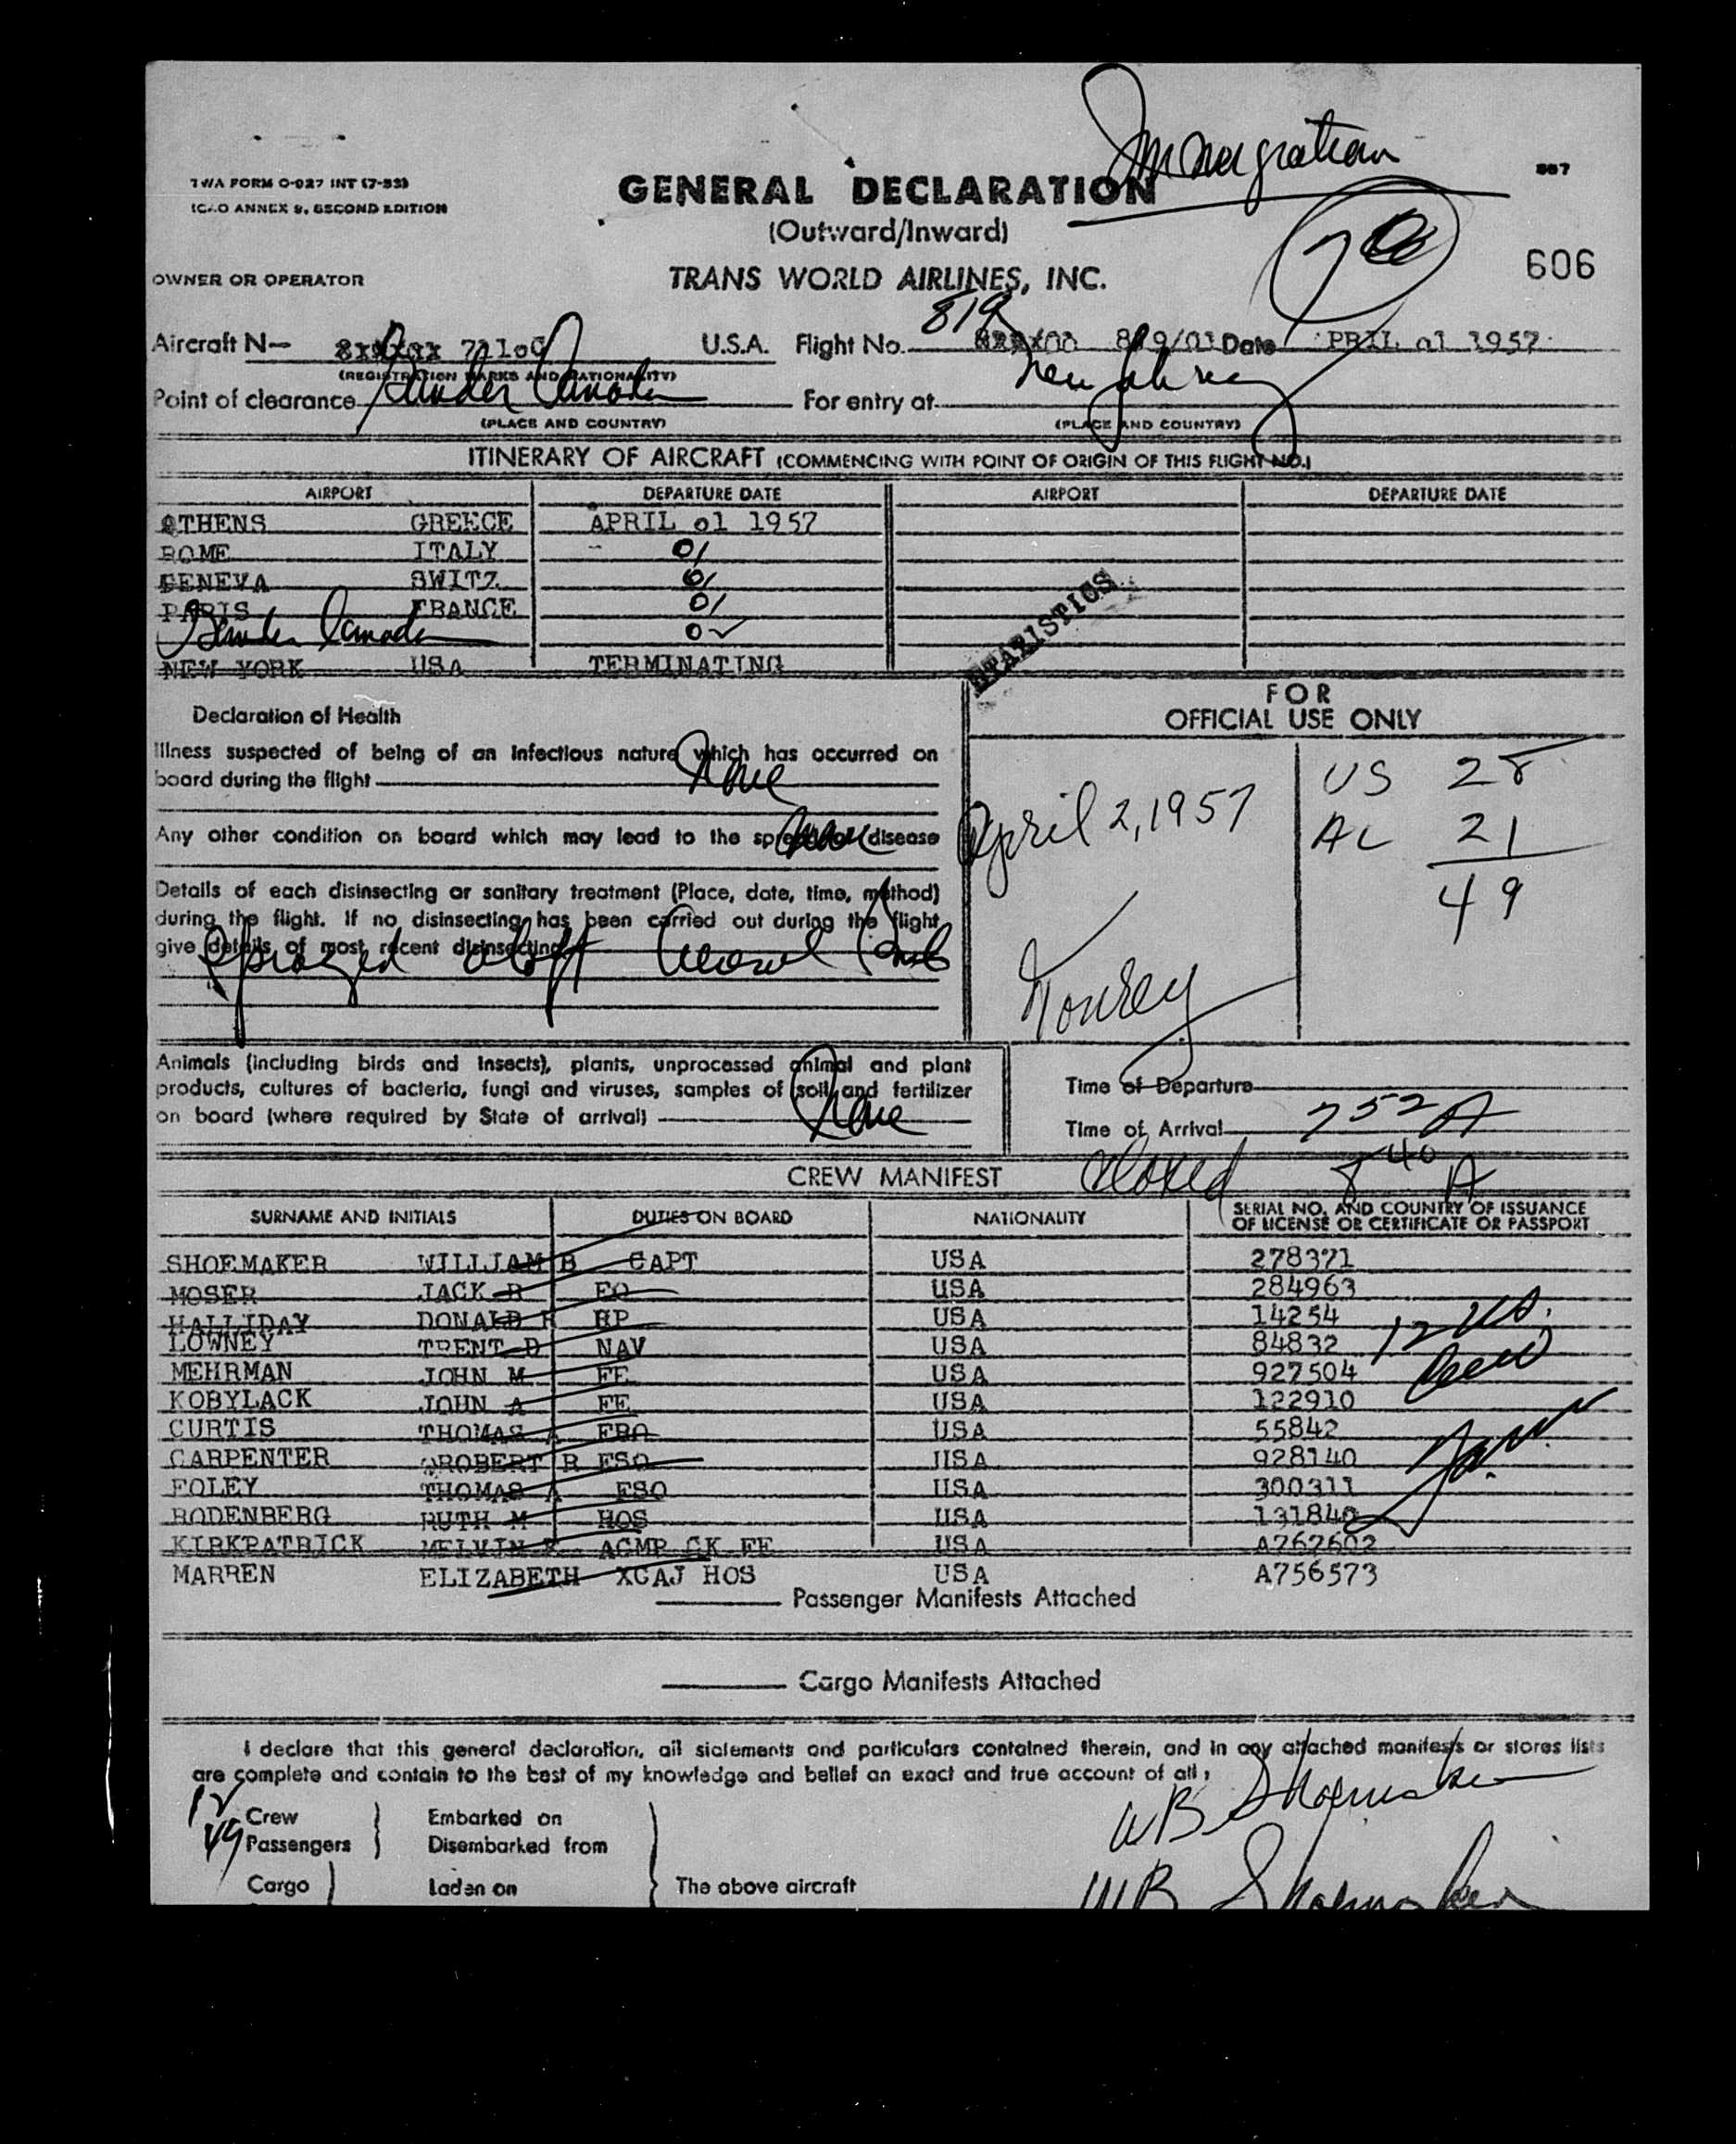 Immigration
TWA FORM O-927 INT (7-53)
ICAO ANNEX 9, SECOND EDITION
GENERAL DECLARATION
(Outward/Inward)
OWNER OR OPERATOR
TRANS WORLD AIRLINES, INC.
606
819
Aircraft N— U.S.A. Flight No. 819/01 Date PRIL 01 1957
(REGISTRATION MARKS AND NATIONALITY)
Point of clearance Gander Canada For entry at New York
(PLACE AND COUNTRY) (PLACE AND COUNTRY)
ITINERARY OF AIRCRAFT (COMMENCING WITH POINT OF ORIGIN OF THIS FLIGHT NO.)
AIRPORT DEPARTURE DATE AIRPORT DEPARTURE DATE
ATHENS GREECE APRIL 01 1957
ROME ITALY 01
GENEVA SWITZ 01
PARIS FRANCE 01
Gander Canada 02
NEW YORK USA TERMINATING
STATISTICS
FOR
OFFICIAL USE ONLY
Declaration of Health
Illness suspected of being of an infectious nature which has occurred on
board during the flight None
Any other condition on board which may lead to the spread of disease None
Details of each disinsecting or sanitary treatment (Place, date, time, method)
during the flight. If no disinsecting has been carried out during the flight
give details of most recent disinsecting
Sprayed aloft Aerosol Bomb
April 2, 1957
US 28
AL 21
49
Animals (including birds and insects), plants, unprocessed animal and plant
products, cultures of bacteria, fungi and viruses, samples of soil and fertilizer
on board (where required by State of arrival) None
Time of Departure
Time of Arrival 752 A
CREW MANIFEST
Closed 840 A
SURNAME AND INITIALS DUTIES ON BOARD NATIONALITY SERIAL NO. AND COUNTRY OF ISSUANCE
OF LICENSE OR CERTIFICATE OR PASSPORT
SHOEMAKER WILLIAM B CAPT USA 278371
MOSER JACK R FO USA 284963
HALLIDAY DONALD H RP USA 14254
LOWNEY TRENT D NAV USA 84832
MEHRMAN JOHN M FE USA 927504
KOBYLACK JOHN A FE USA 122910
CURTIS THOMAS A FRO USA 55842
CARPENTER ROBERT R FSO USA 928140
FOLEY THOMAS A FSO USA 300311
RODENBERG RUTH M HOS USA 131840
KIRKPATRICK MELVIN ACMR CK FE USA A767602
MARREN ELIZABETH XCAJ HOS USA A756573
12 US.
Crew
Passenger Manifests Attached
Cargo Manifests Attached
I declare that this general declaration, all statements and particulars contained therein, and in any attached manifests or stores lists
are complete and contain to the best of my knowledge and belief an exact and true account of all:
12 Crew Embarked on
49 Passengers Disembarked from
Cargo Laden on The above aircraft
WB Shoemaker
WB Shoemaker